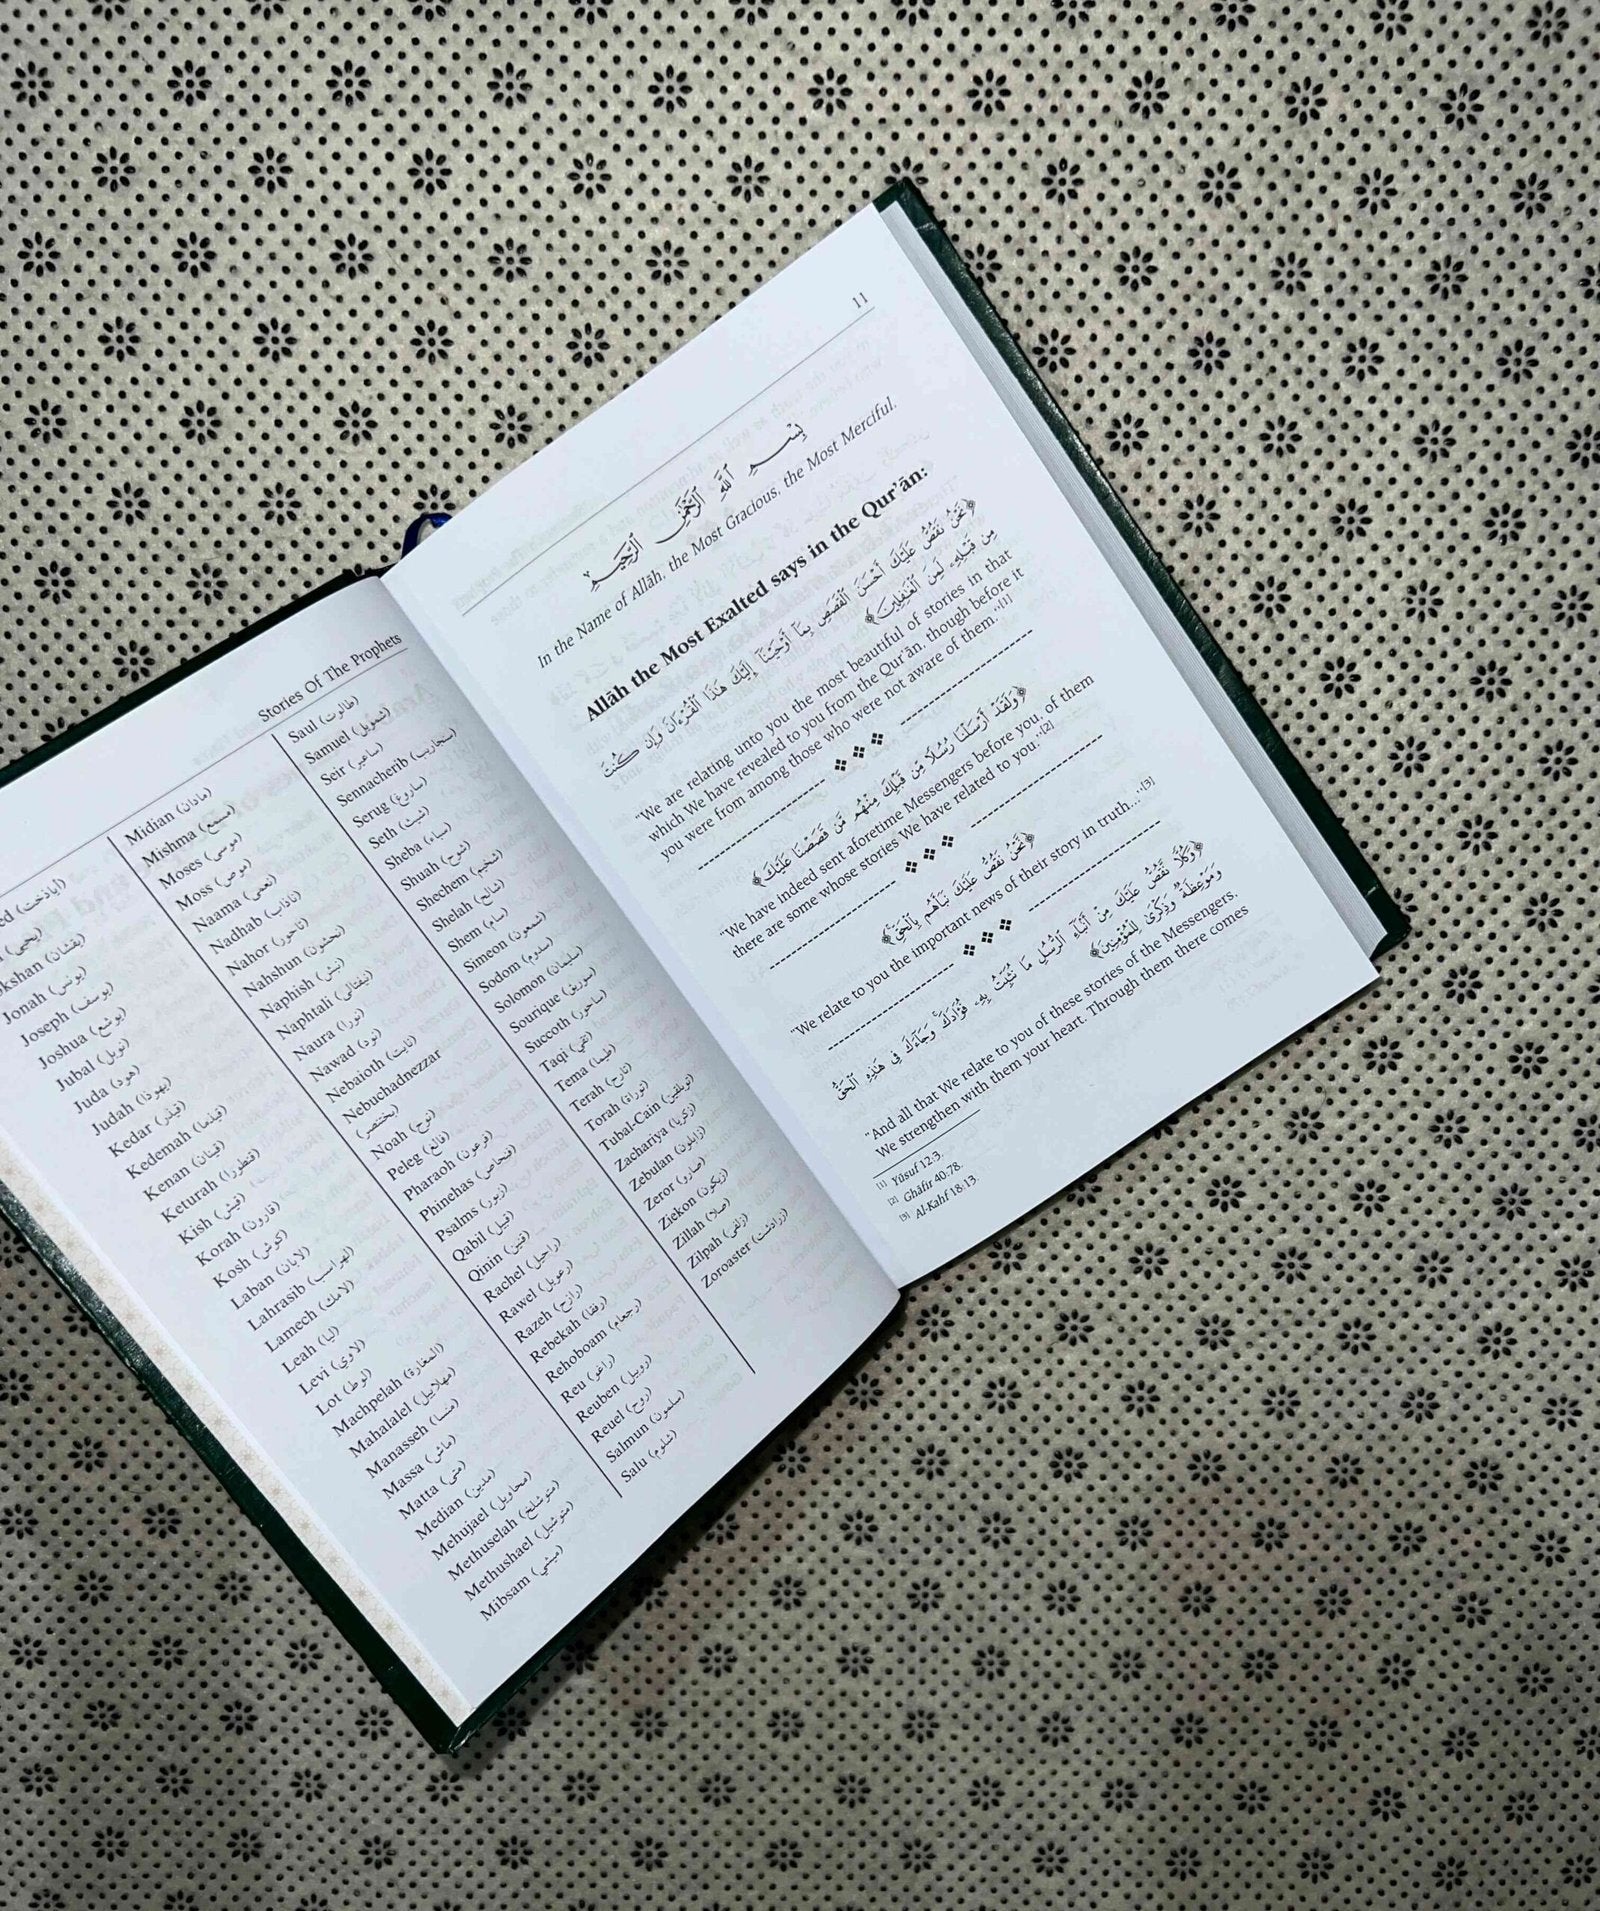 Stories Of The Prophets
Jonah (يونس)
Joseph (يوسف)
Joshua (يوشع)
Jubal (توبل)
Juda (هود)
Judah (يهوذا)
Kedar (قيذر)
Kedemah (قيذما)
Kenan (قينان)
Keturah (قنطورا)
Kish (قيش)
Korah (قارون)
Kosh (كوش)
Laban (لابان)
Lahrasib (لهراسب)
Lamech (لامك)
Leah (ليا)
Levi (لاوي)
Lot (لوط)
Machpelah (المغارة)
Mahalalel (مهلاييل)
Manasseh (منسا)
Massa (ماش)
Matta (متى)
Median (مدين)
Mehujael (محاويل)
Methuselah (متوشلخ)
Methushael (متوشيل)
Mibsam (ميشي)
Midian (مادان)
Mishma (مسمع)
Moses (موسى)
Moss (موص)
Naama (نعمى)
Nadhab (ناذاب)
Nahor (ناحور)
Nahshun (نحشون)
Naphish (نبش)
Naphtali (نيفتالي)
Naura (نورا)
Nawad (نود)
Nebaioth (نابت)
Nebuchadnezzar
(بختنصر)
Noah (نوح)
Peleg (فالغ)
Pharaoh (فرعون)
Phinehas (فنحاص)
Psalms (زبور)
Qabil (قبل)
Qinin (قنين)
Rachel (راحيل)
Rawel (رعويل)
Razeh (رازح)
Rebekah (رفقا)
Rehoboam (رحبعام)
Reu (راغو)
Reuben (روبيل)
Reuel (روح)
Salmun (سلمون)
Salu (شلوم)
Saul (طالوت)
Samuel (شمويل)
Seir (ساعير)
Sennacherib (سنحاريب)
Serug (ساروغ)
Seth (شيث)
Sheba (سباه)
Shuah (شوح)
Shechem (شخيم)
Shelah (شالخ)
Shem (سام)
Simeon (شمعون)
Sodom (سدوم)
Solomon (سليمان)
Sourique (سوريق)
Succoth (ساحور)
Taqi (تقي)
Tema (طيما)
Terah (تارح)
Torah (توراة)
Tubal-Cain (توبلقين)
Zachariya (زكريا)
Zebulan (زابلون)
Zeror (صارو)
Ziekon (زيكون)
Zillah (صلا)
Zilpah (زلفى)
Zoroaster (زرادشت)
11
بِسْمِ اللَّهِ الرَّحْمَنِ الرَّحِيمِ
In the Name of Allāh, the Most Gracious, the Most Merciful.
Allāh the Most Exalted says in the Qur'ān:
﴿نَحْنُ نَقُصُّ عَلَيْكَ أَحْسَنَ الْقَصَصِ بِمَا أَوْحَيْنَا إِلَيْكَ هَذَا الْقُرْءَانَ وَإِن كُنتَ
مِن قَبْلِهِ لَمِنَ الْغَافِلِينَ﴾
"We are relating unto you the most beautiful of stories in that
which We have revealed to you from the Qur'ān, though before it
you were from among those who were not aware of them."[1]
﴿وَلَقَدْ أَرْسَلْنَا رُسُلًا مِّن قَبْلِكَ مِنْهُم مَّن قَصَصْنَا عَلَيْكَ﴾
"We have indeed sent aforetime Messengers before you, of them
there are some whose stories We have related to you."[2]
﴿نَحْنُ نَقُصُّ عَلَيْكَ نَبَأَهُم بِالْحَقِّ﴾
"We relate to you the important news of their story in truth..."[3]
﴿وَكُلًّا نَّقُصُّ عَلَيْكَ مِنْ أَنبَاءِ الرُّسُلِ مَا نُثَبِّتُ بِهِ فُؤَادَكَ وَجَاءَكَ فِي هَذِهِ الْحَقُّ
وَمَوْعِظَةٌ وَذِكْرَى لِلْمُؤْمِنِينَ﴾
"And all that We relate to you of these stories of the Messengers,
We strengthen with them your heart. Through them there comes
[1] Yūsuf 12:3.
[2] Ghāfir 40:78.
[3] Al-Kahf 18:13.